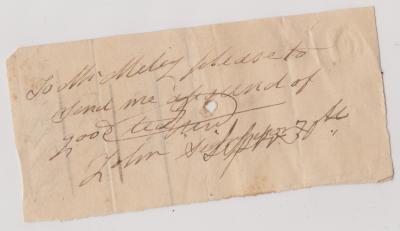 To Mr Meley please to
send me a pound of
good tea
John